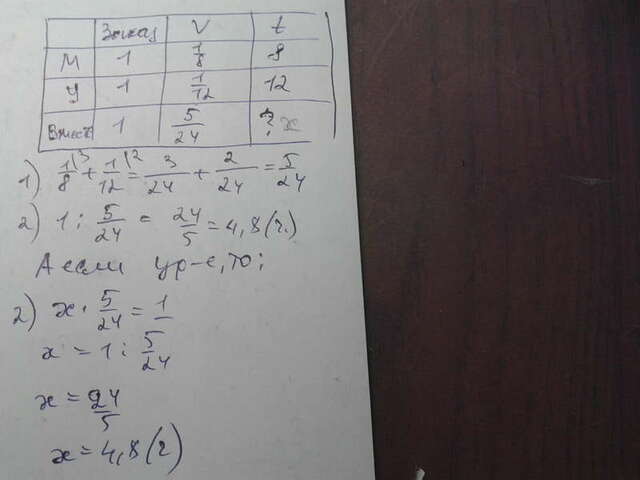 Заказ V t
М 1 1/8 8
У 1 1/12 12
Вмест 1 5/24 ? x
1) 1/8\3 + 1/12\2 = 3/24 + 2/24 = 5/24
2) 1 : 5/24 = 24/5 = 4,8 (ч.)
А если ур-е, то:
2) x · 5/24 = 1
x = 1 : 5/24
x = 24/5
x = 4,8 (ч)